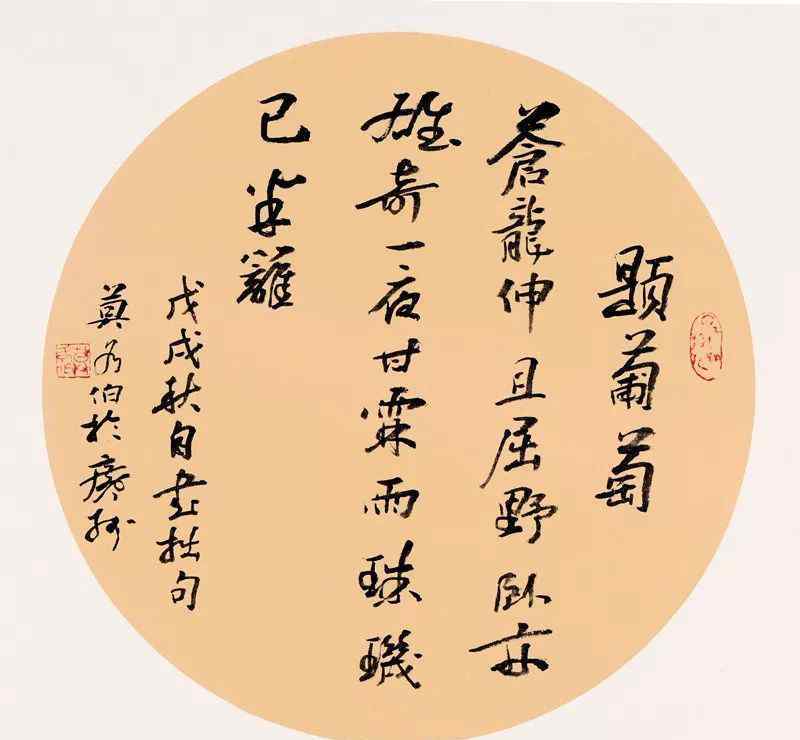 題葡萄
蒼龍伸且屈野卧亦
雄奇一夜甘霖雨珠璣
已半籬
戊戌秋自書拙句
莫各伯於廣州